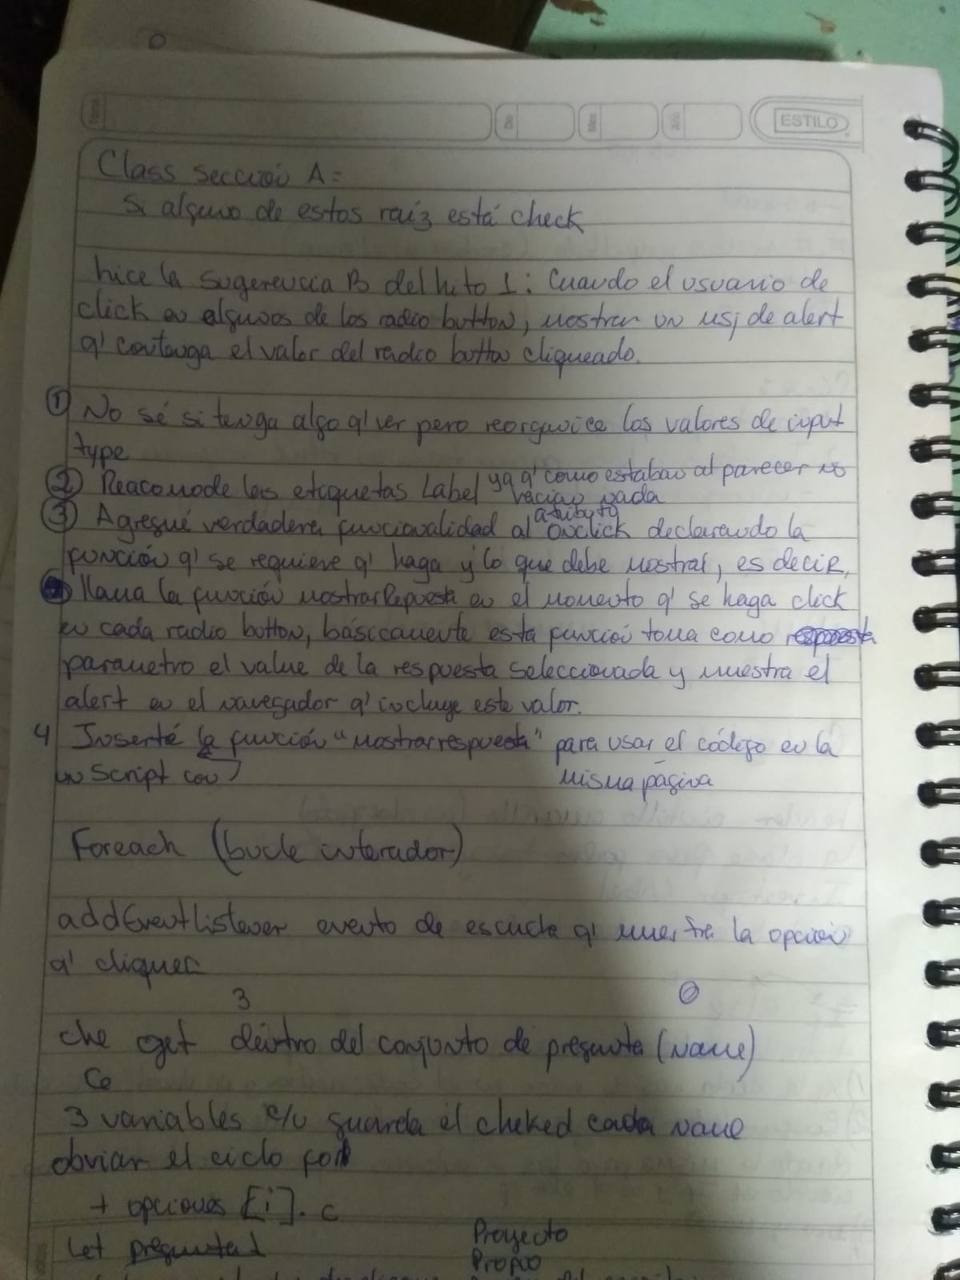 ESTILO
Class sección A:
Si alguno de estos raíz está check
hice la sugerencia B del hito 1: Cuando el usuario de
click en algunos de los radio button, mostrar un msj de alert
q' contenga el valor del radio button cliqueado.
① No sé si tenga algo q' ver pero reorganice los valores de input
type
② Reacomode las etiquetas Label ya q' como estaban al parecer no
hacian nada
③ Agregué verdadera funcionalidad al atributo Onclick declarando la
función q' se requiere q' haga y lo que debe mostrar, es decir,
llama la función mostrarRepuesta en el momento q' se haga click
en cada radio button, básicamente esta función toma como
parametro el value de la respuesta seleccionada y muestra el
alert en el navegador q' incluye este valor.
4 Inserté la función "mostrarrespuesta" para usar el código en la
un script con misma página
Foreach (bucle interador)
addEventListener evento de escucha q' muestre la opcion
q' cliquee
3 0
che get dentro del conjunto de pregunta (name)
Ce
3 variables c/u guarda el cheked cada name
obviar el ciclo for
+ opciones [i]. c
Let pregunta1 Proyecto
Propio